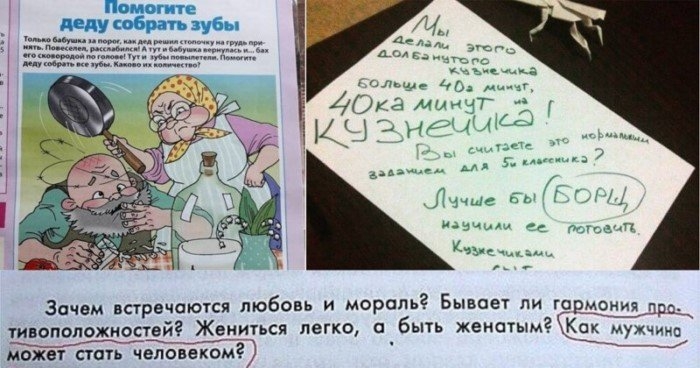 Помогите
деду собрать зубы
Только бабушка за порог, как дед решил стопочку на грудь при-
нять. Повеселел, расслабился! А тут и бабушка вернулась и... бах
его сковородой по голове! Тут и зубы повылетели. Помогите
деду собрать все зубы. Каково их количество?
Мы
делали этого
долбанутого
кузнечика
больше 40а минут,
40ка минут на
КУЗНЕЧИКА!
Вы считаете это нормальным
заданием для 5и классника?
Лучше бы БОРЩ
научили ее готовить.
Кузнечиками
Зачем встречаются любовь и мораль? Бывает ли гармония про-
тивоположностей? Жениться легко, а быть женатым? Как мужчина
может стать человеком?